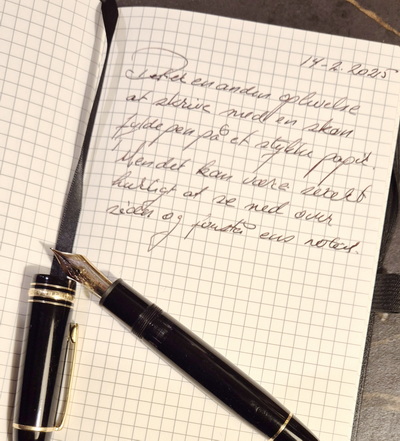 14-2.2025
Det er en anden oplevelse
at skrive med en skøn
fyldepen på et stykke papir.
Men det kan være svært
hurtigt at se ned over
siden og forstå ens noter.